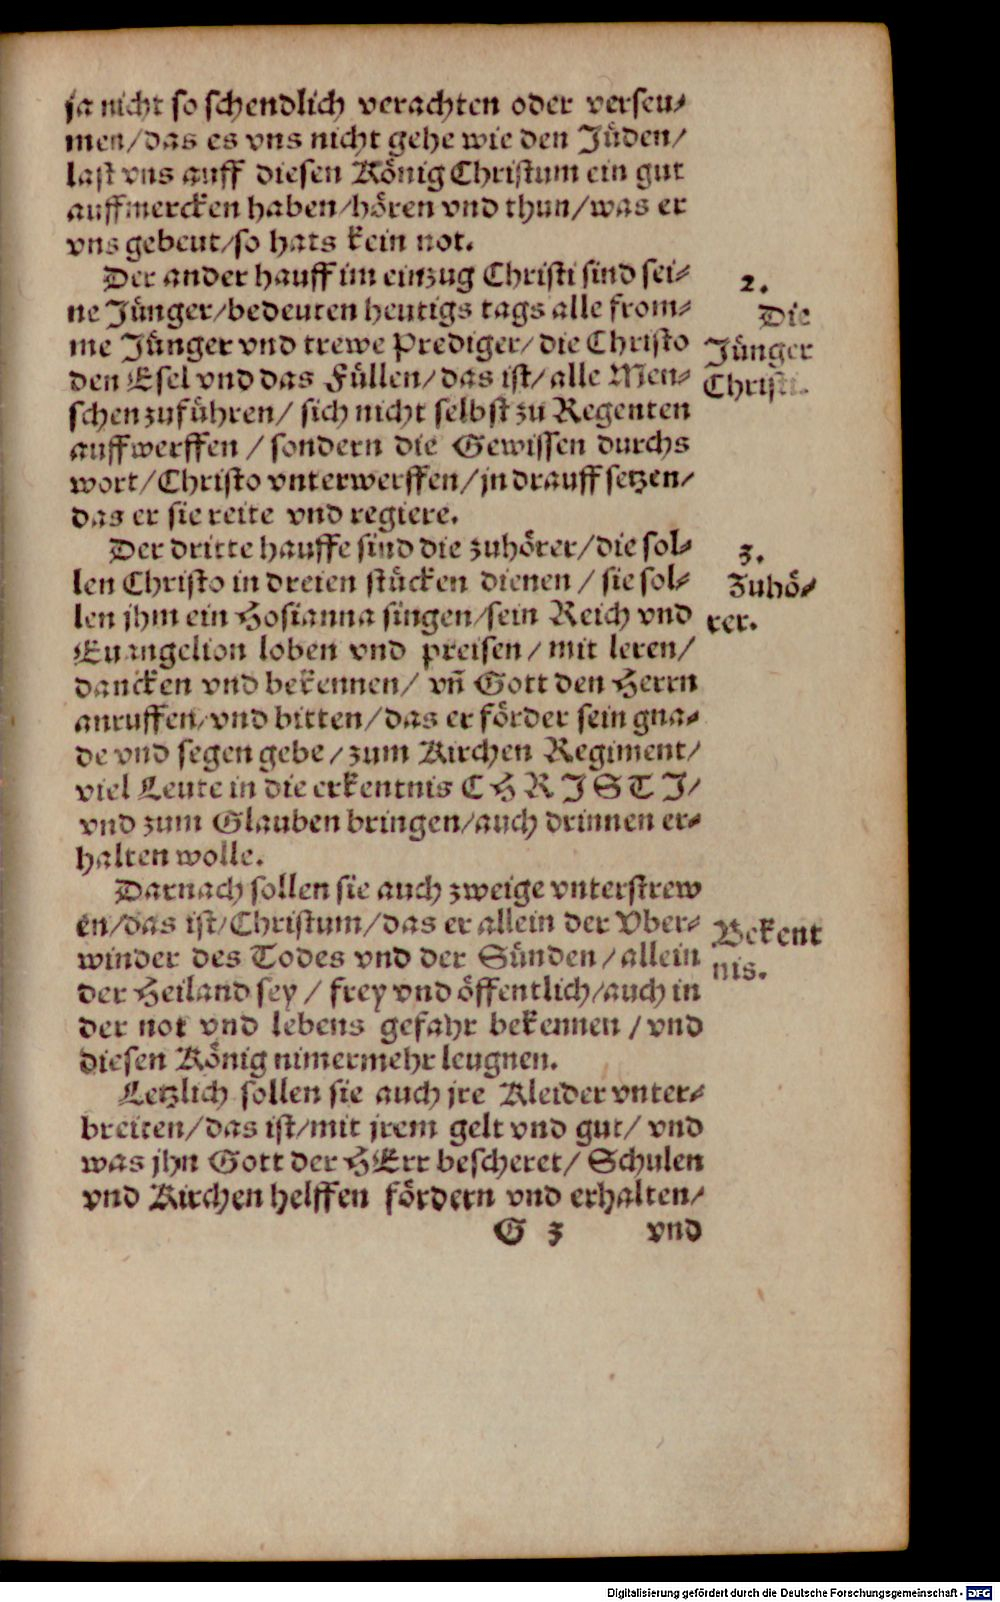 ja nicht so schendlich verachten oder verseu⸗
men/das es vns nicht gehe wie den Jüden/
last vns auff diesen König Christum ein gut
auffmercken haben/hören vnd thun/was er
vns gebeut/so hats kein not.
Der ander hauff im einzug Christi sind sei⸗
ne Jünger/bedeuten heutigs tags alle from⸗
me Jünger vnd trewe Prediger/die Christo
den Esel vnd das Füllen/das ist/alle Men⸗
schen zuführen/ sich nicht selbst zu Regenten
auffwerffen / sondern die Gewissen durchs
wort/Christo vnterwerffen/jn drauff setzen/
das er sie reite vnd regiere.
2.
Die
Jünger
Christi.
Der dritte hauffe sind die zuhörer/die sol⸗
len Christo in dreien stücken dienen / sie sol⸗
len jhm ein Hosianna singen/sein Reich vnd
Euangelion loben vnd preisen/ mit leren/
dancken vnd bekennen/ vñ Gott den Herrn
anruffen/vnd bitten/das er förder sein gna⸗
de vnd segen gebe/zum Kirchen Regiment/
viel Leute in die erkentnis C H R J S T J/
vnd zum Glauben bringen/auch drinnen er⸗
halten wolle.
3.
Zuhö⸗
rer.
Darnach sollen sie auch zweige vnterstrew
en/das ist/Christum/das er allein der Vber⸗
winder des Todes vnd der Sünden/allein
der Heiland sey / frey vnd öffentlich/auch in
der not vnd lebens gefahr bekennen / vnd
diesen König nimermehr leugnen.
Bekent
nis.
Letzlich sollen sie auch jre Kleider vnter⸗
breiten/das ist/mit jrem gelt vnd gut/ vnd
was jhn Gott der HErr bescheret/ Schulen
vnd Kirchen helffen fördern vnd erhalten/
G 3 vnd
Digitalisierung gefördert durch die Deutsche Forschungsgemeinschaft - DFG